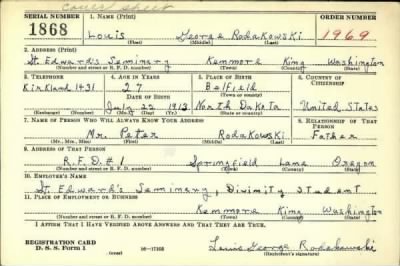 Cover sheet
SERIAL NUMBER 1. NAME (Print) ORDER NUMBER
1868 Louis George Rodakowski 1969
(First) (Middle) (Last)
2. ADDRESS (Print)
St. Edward's Seminary Kenmore King Washington
(Number and street or R. F. D. number) (Town) (County) (State)
3. TELEPHONE 4. AGE IN YEARS 5. PLACE OF BIRTH 6. COUNTRY OF CITIZENSHIP
Kirkland 1431 27 Belfield
DATE OF BIRTH (Town or county)
July 22 1913 North Dakota United States
(Exchange) (Number) (Mo.) (Day) (Yr.) (State or country)
7. NAME OF PERSON WHO WILL ALWAYS KNOW YOUR ADDRESS 8. RELATIONSHIP OF THAT PERSON
Mr. Peter Rodakowski Father
(Mr., Mrs., Miss) (First) (Middle) (Last)
9. ADDRESS OF THAT PERSON
R.F.D. # 1 Springfield Lane Oregon
(Number and street or R. F. D. number) (Town) (County) (State)
10. EMPLOYER'S NAME
St. Edward's Seminary, Divinity Student
11. PLACE OF EMPLOYMENT OR BUSINESS
Kenmore King Washington
(Number and street or R. F. D. number) (Town) (County) (State)
I AFFIRM THAT I HAVE VERIFIED ABOVE ANSWERS AND THAT THEY ARE TRUE.
REGISTRATION CARD
D. S. S. Form 1 (over) 16—17105 Louis George Rodakowski
(Registrant's signature)